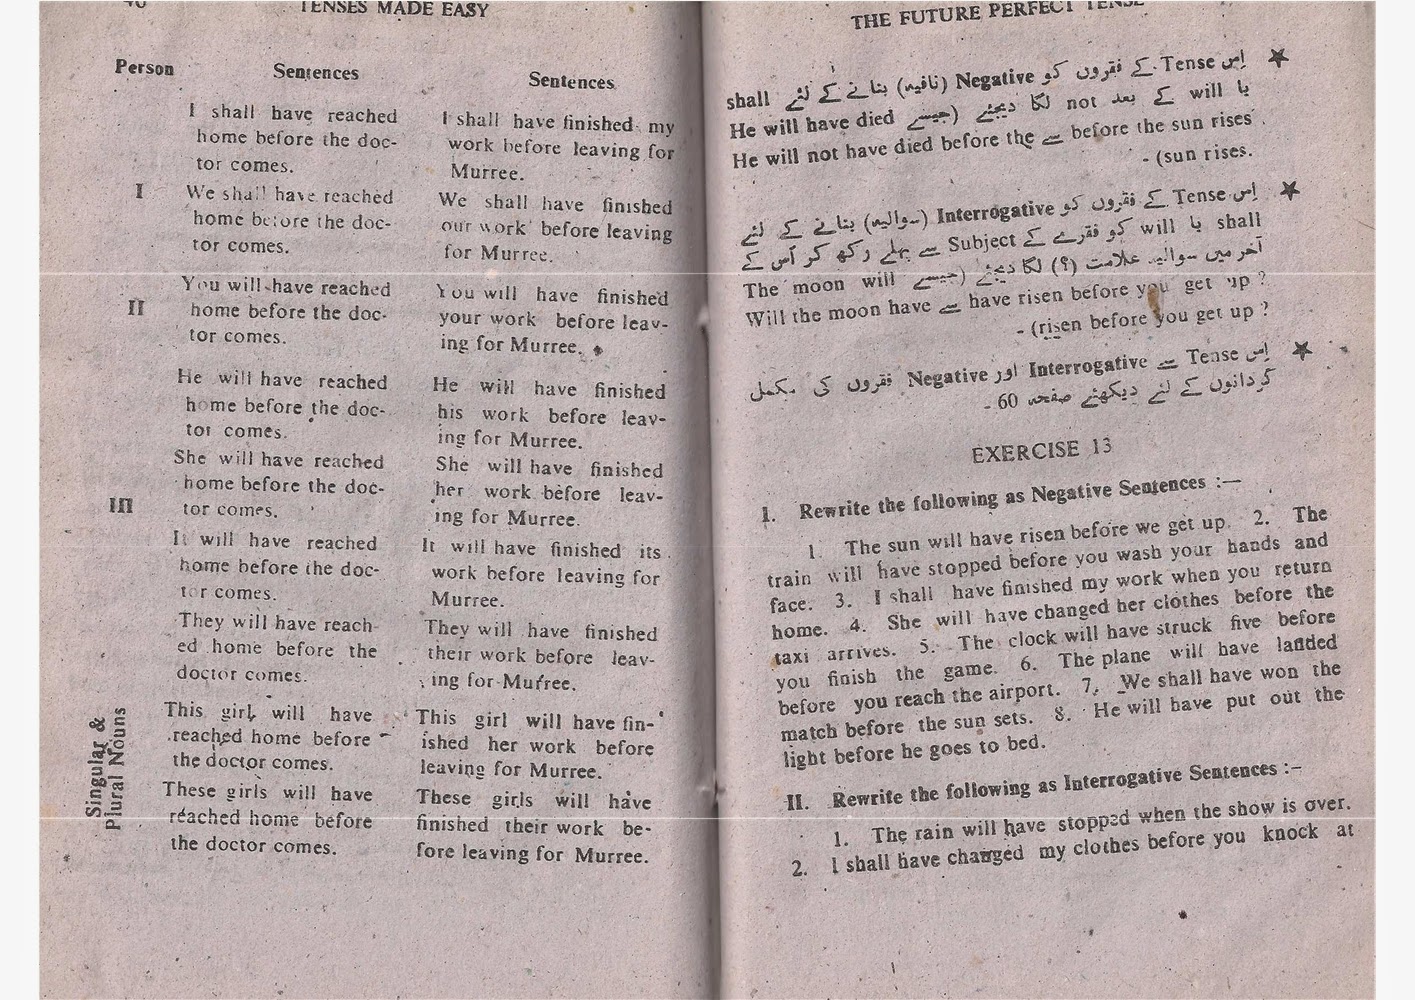 TENSES MADE EASY
Person Sentences Sentences
I shall have reached
home before the doc-
tor comes.
I
We shall have reached
home before the doc-
tor comes.
You will have reached
II
home before the doc-
tor comes.
He will have reached
home before the doc-
tor comes.
She will have reached
home before the doc-
III
tor comes.
It will have reached
home before the doc-
tor comes.
They will have reach-
ed home before the
doctor comes.
Singular &
Plural Nouns
This girl will have
reached home before
the doctor comes.
These girls will have
reached home before
the doctor comes.
I shall have finished my
work before leaving for
Murree.
We shall have finished
our work before leaving
for Murree.
You will have finished
your work before leav-
ing for Murree.
He will have finished
his work before leav-
ing for Murree.
She will have finished
her work before leav-
ing for Murree.
It will have finished its
work before leaving for
Murree.
They will have finished
their work before leav-
ing for Murree.
This girl will have fin-
ished her work before
leaving for Murree.
These girls will have
finished their work be-
fore leaving for Murree.
THE FUTURE PERFECT TENSE
★ اِس Tense کے فقروں کو Negative (نافیہ) بنانے کے لئے shall
یا will کے بعد not لگا دیجئے (جیسے He will have died
before the sun rises سے He will not have died before the
sun rises.) -
★ اِس Tense کے فقروں کو Interrogative (سوالیہ) بنانے کے لئے
shall یا will کو فقرے کے Subject سے پہلے رکھ کر اُس کے
آخر میں سوالیہ علامت (؟) لگا دیجئے (جیسے The moon will
have risen before you get up ? سے Will the moon have
risen before you get up ?) -
★ اِس Tense سے Interrogative اور Negative فقروں کی مکمل
گردانوں کے لئے دیکھئے صفحہ 60 -
EXERCISE 13
1. Rewrite the following as Negative Sentences :—
1. The sun will have risen before we get up. 2. The
train will have stopped before you wash your hands and
face. 3. I shall have finished my work when you return
home. 4. She will have changed her clothes before the
taxi arrives. 5. The clock will have struck five before
you finish the game. 6. The plane will have landed
before you reach the airport. 7. We shall have won the
match before the sun sets. 8. He will have put out the
light before he goes to bed.
II. Rewrite the following as Interrogative Sentences :-
1. The rain will have stopped when the show is over.
2. I shall have changed my clothes before you knock at